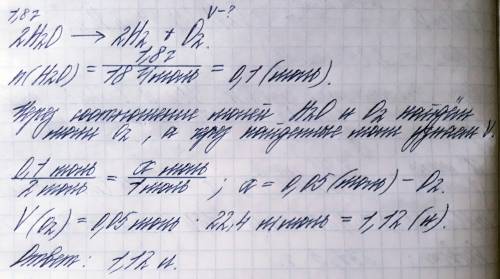 1,8г V-?
2H₂O → 2H₂ + O₂.
n(H₂O) = 1,8г / 18 г/моль = 0,1 (моль).
Через соотношение молей H₂O и O₂ найдём
моли O₂, а через найденные моли узнаем V.
0,1 моль / 2 моль = x моль / 1 моль ; x = 0,05 (моль) - O₂.
V(O₂) = 0,05 моль · 22,4 л/моль = 1,12 (л).
Ответ: 1,12 л.